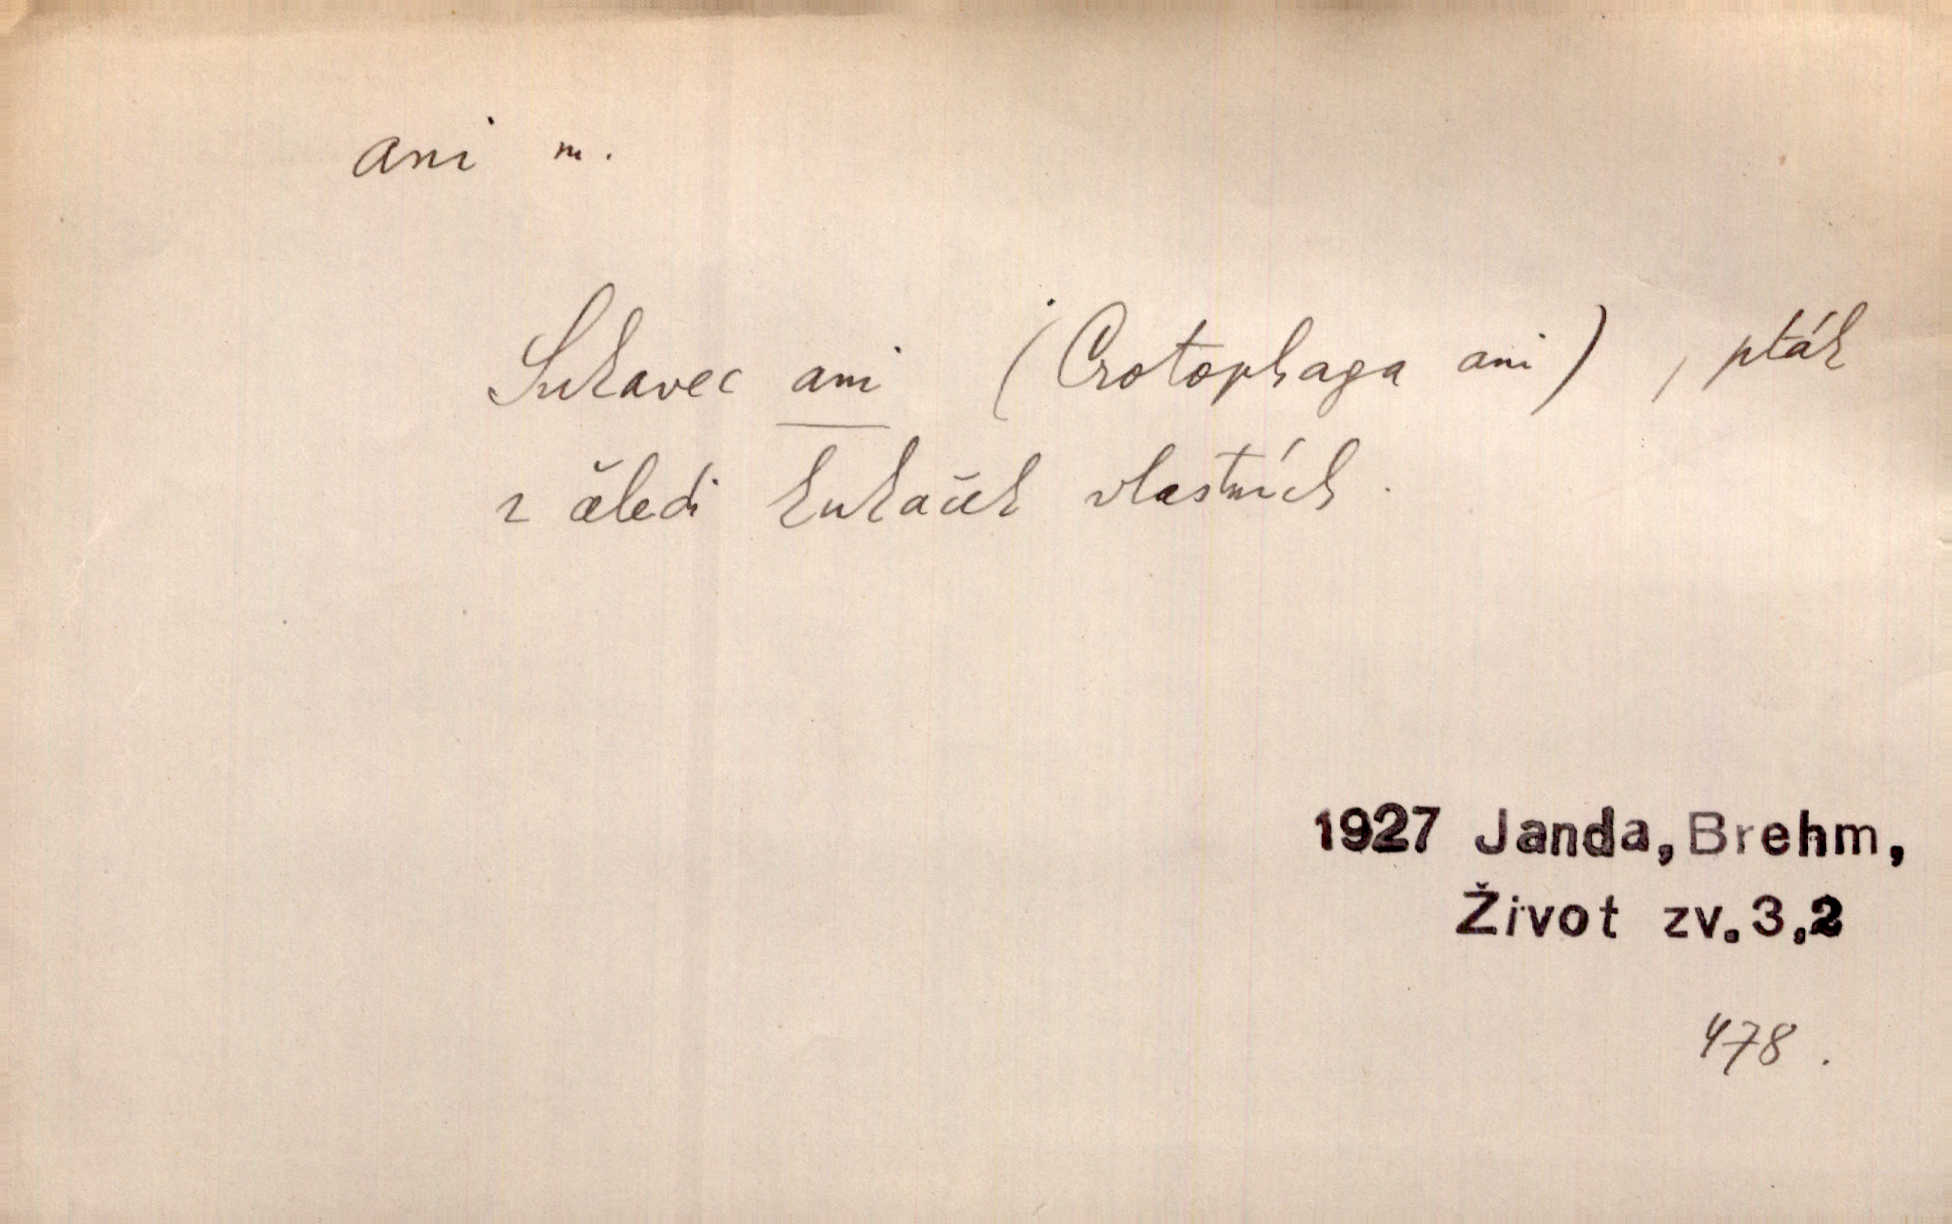 ani m.
Sukavec ani (Crotophaga ani), pták
z čeledi kukaček vlastních.
1927 Janda, Brehm,
Život zv. 3,2
478.